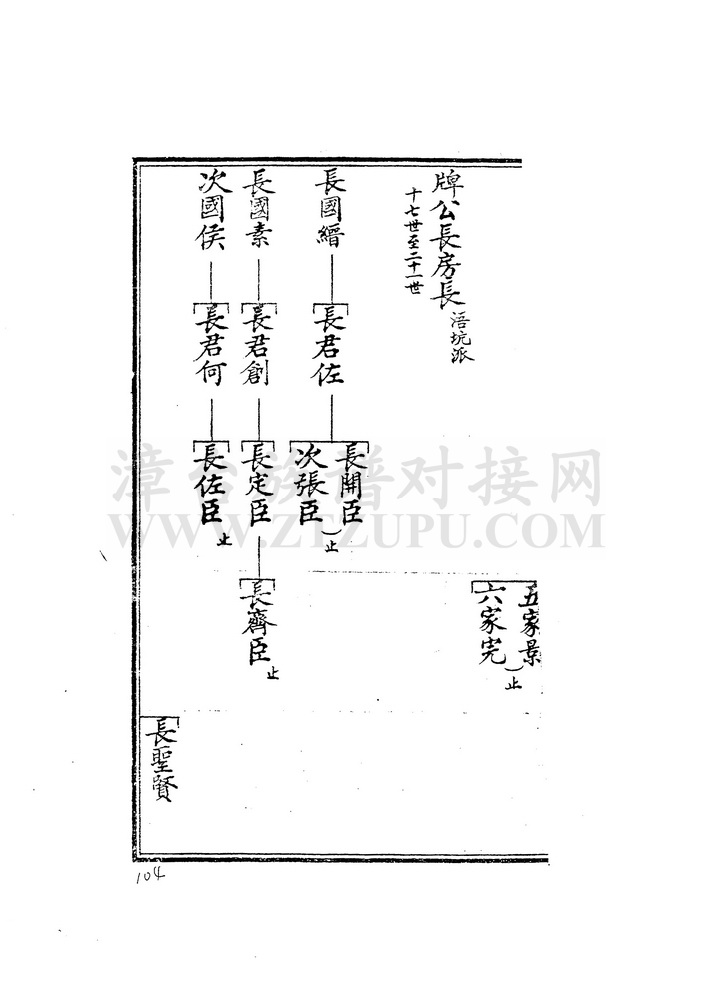 牌公長房長 浯坑派
十七世至二十一世
長國縉
長君佐
長開臣
次張臣 止
長國素
長君創
長定臣
長齊臣 止
次國侯
長君何
長佐臣 止
五家景
六家完 止
長聖賢
104
漳台族谱对接网
WWW.ZTZUPU.COM